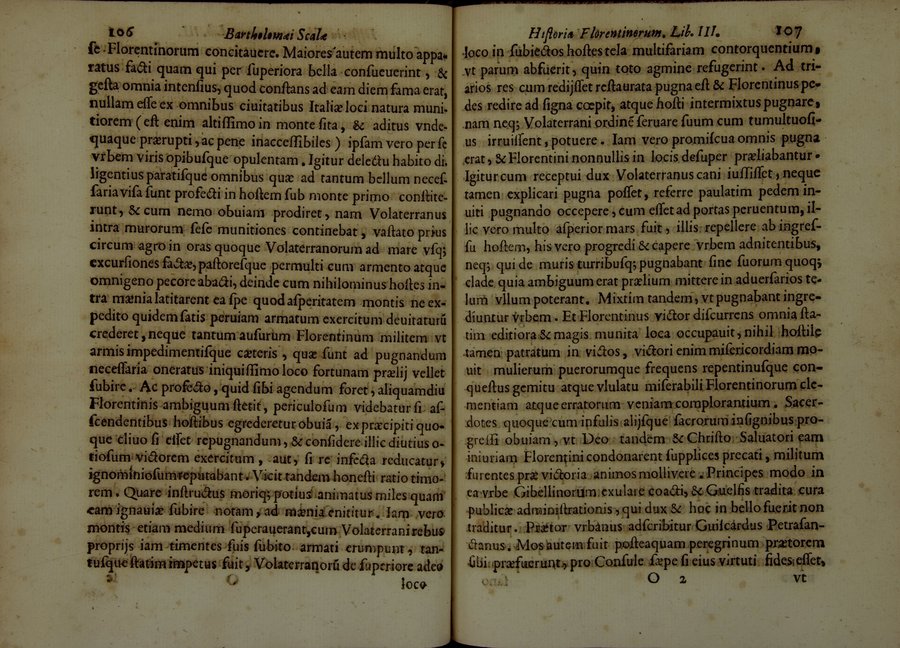 106 Bartholomæi Scalæ
se Florentinorum concitauere. Maiores autem multo appa-
ratus facti quam qui per superiora bella consueuerint, &
gesta omnia intensius, quod constans ad eam diem fama erat,
nullam esse ex omnibus ciuitatibus Italiæ loci natura muni-
tiorem (est enim altissimo in monte sita, & aditus vnde-
quaque prærupti, ac pene inaccessibiles) ipsam vero per se
vrbem viris opibusque opulentam. Igitur delectu habito di,
ligentius paratisque omnibus quæ ad tantum bellum neces-
saria visa sunt profecti in hostem sub monte primo constite-
runt, & cum nemo obuiam prodiret, nam Volaterranus
intra murorum sese munitiones continebat, vastato prius
circum agro in oras quoque Volaterranorum ad mare vsq;
excursiones factæ, pastoresque permulti cum armento atque
omnigeno pecore abacti, deinde cum nihilominus hostes in-
tra mænia latitarent ea spe quod asperitatem montis ne ex-
pedito quidem satis peruiam armatum exercitum deuitaturū
crederet, neque tantum ausurum Florentinum militem vt
armis impedimentisque cæteris, quæ sunt ad pugnandum
necessaria oneratus iniquissimo loco fortunam prælij vellet
subire. Ac profecto, quid sibi agendum foret, aliquamdiu
Florentinis ambiguum stetit, periculosum videbatur si as-
scendentibus hostibus egrederetur obuiā, ex præcipiti quo-
que cliuo si esset repugnandum, & considere illic diutius o-
tiosum victorem exercitum, aut, si re infecta reducatur,
ignominiosum reputabant. Vicit tandem honesti ratio timo-
rem. Quare instructus moriq; potius animatus miles quam
eam ignauiæ subire notam, ad mænia enititur. Iam vero
montis etiam medium superauerant, cum Volaterrani rebus
proprijs iam timentes suis subito armati erumpunt, tan-
tusque statim impetus fuit, Volaterranorū de superiore adeo
O
loco
Historiæ Florentinorum. Lib. III. 107
loco in subiectos hostes tela multifariam contorquentium,
vt parum abfuerit, quin toto agmine refugerint. Ad tri-
arios res cum redijsset restaurata pugna est & Florentinus pe-
des redire ad signa cœpit, atque hosti intermixtus pugnare,
nam neq; Volaterrani ordinē seruare suum cum tumultuosi-
us irruissent, potuere. Iam vero promiscua omnis pugna
erat, & Florentini nonnullis in locis desuper præliabantur.
Igitur cum receptui dux Volaterranus cani iussisset, neque
tamen explicari pugna posset, referre paulatim pedem in-
uiti pugnando occepere, cum esset ad portas peruentum, il-
lic vero multo asperior mars fuit, illis repellere ab ingres-
su hostem, his vero progredi & capere vrbem adnitentibus,
neq; qui de muris turribusq; pugnabant sine suorum quoq;
clade quia ambiguum erat prælium mittere in aduersarios te-
lum vllum poterant. Mixtim tandem, vt pugnabant ingre-
diuntur vrbem. Et Florentinus victor discurrens omnia sta-
tim editiora & magis munita loca occupauit, nihil hostile
tamen patratum in victos, victori enim misericordiam mo-
uit mulierum puerorumque frequens repentinusque con-
questus gemitu atque vlulatu miserabili Florentinorum cle-
mentiam atque erratorum veniam complorantium. Sacer-
dotes quoque cum infulis alijsque sacrorum insignibus pro-
gressi obuiam, vt Deo tandem & Christo Saluatori eam
iniuriam Florentini condonarent supplices precati, militum
furentes præ victoria animos molliuere. Principes modo in
ea vrbe Gibellinorum exulare coacti, & Guelfis tradita cura
publicæ administrationis, qui dux & hoc in bello fuerit non
traditur. Prætor vrbanus adscribitur Guiscardus Petrasan-
ctanus. Mos autem fuit posteaquam peregrinum prætorem
sibi præfuerunt, pro Consule sæpe si eius virtuti fides esset,
O 2
vt